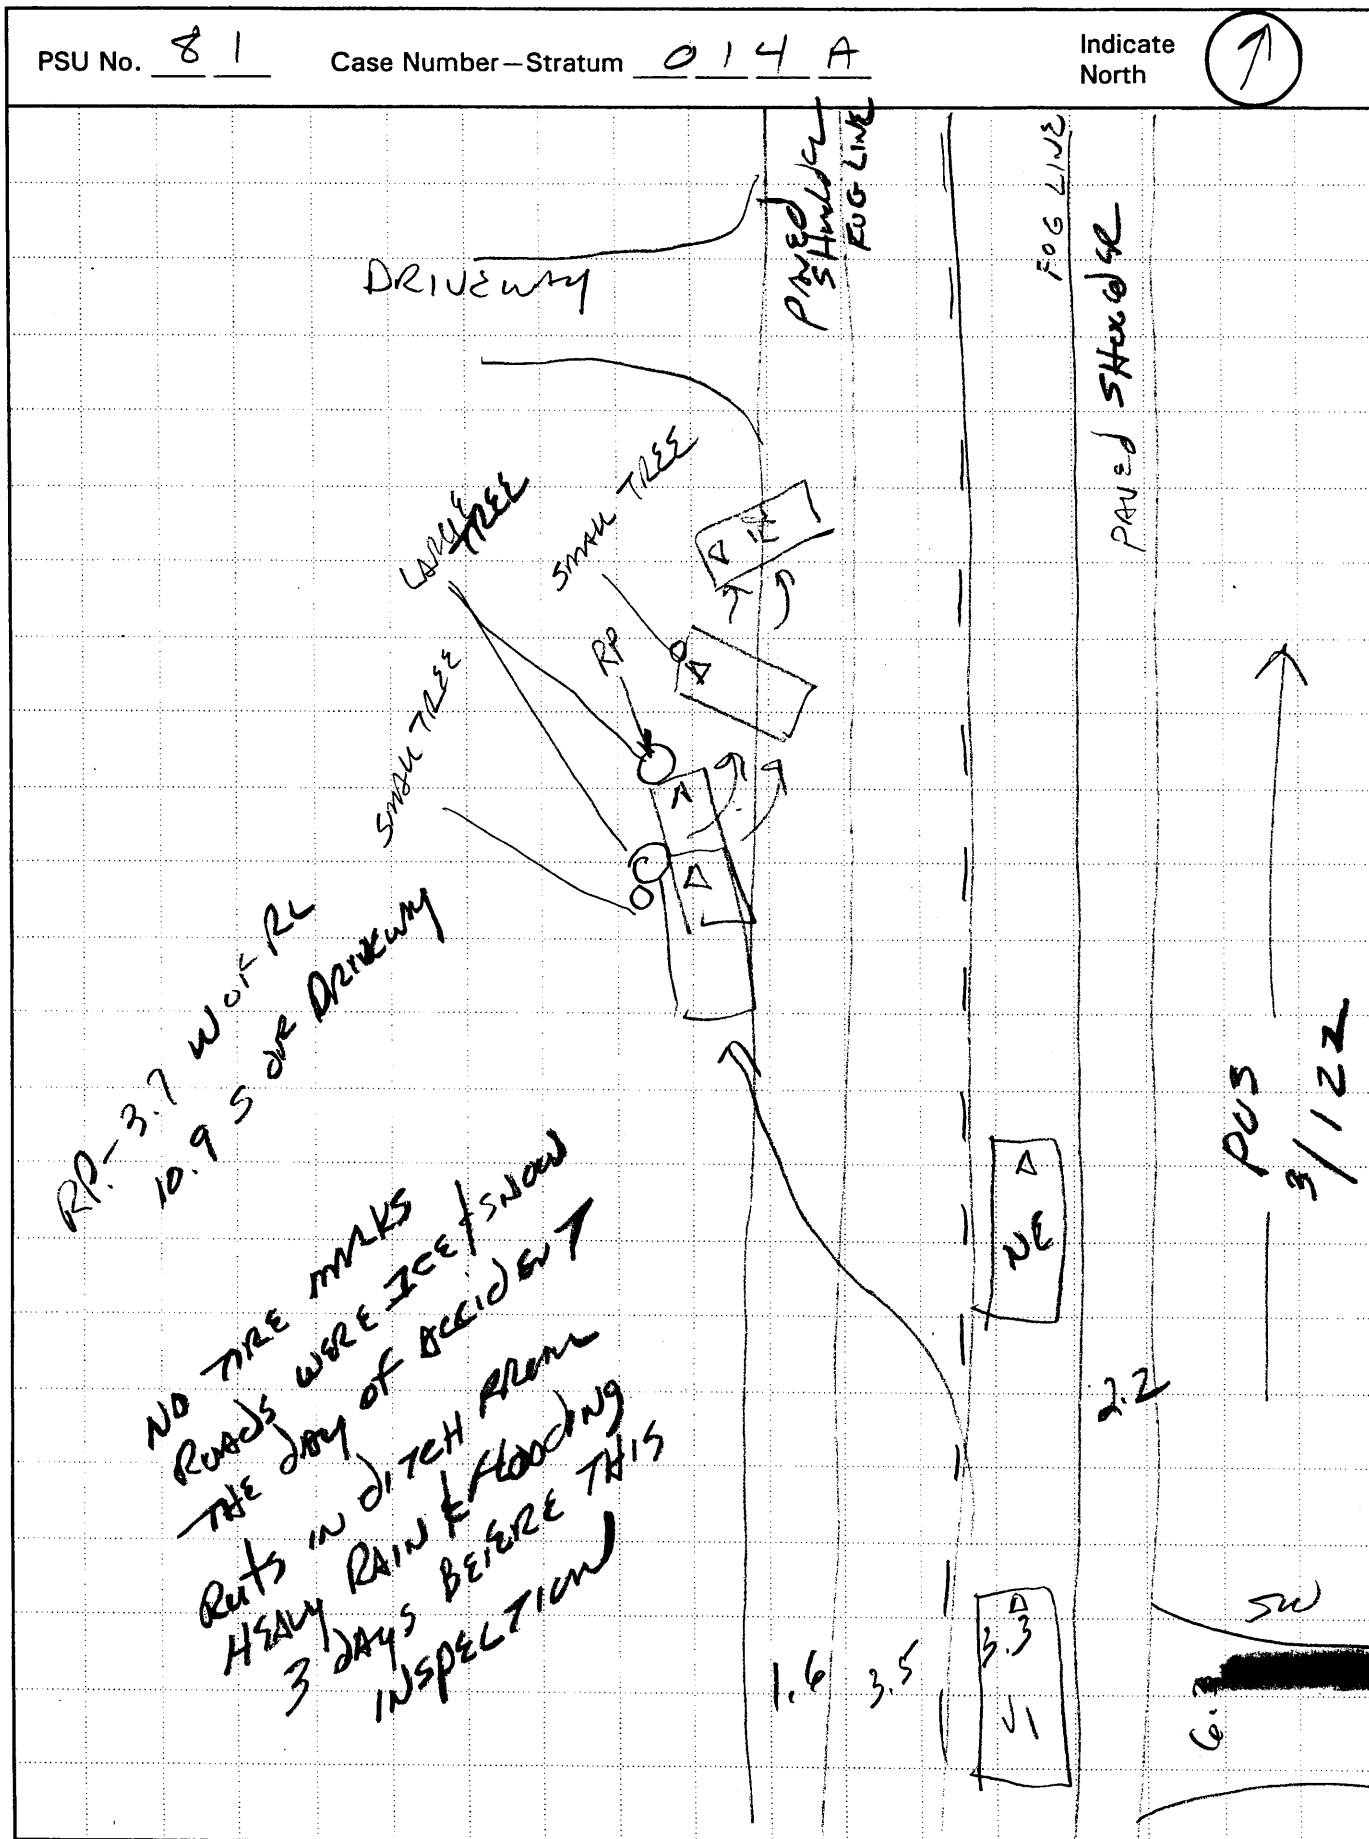 PSU No. 8 1 Case Number–Stratum 0 1 4 A Indicate North
PAVED SHoulder
FOG LINE
FOG LINE
PAVED SHoulder
DRIVEWAY
LARGE TREE
SMALL TREE
RP
SMALL TREE
RP.- 3.7 W OF RL
10.9 S OF DRIVEWAY
NO TIRE MARKS
ROADS WERE ICE & SNOW
THE DAY OF ACCIDENT
RUTS IN DITCH FROM
HEAVY RAIN & FLOODING
3 DAYS BEFORE THIS
INSPECTION
NE
3/122
2.2
1.6
3.5
3.3
V1
SW